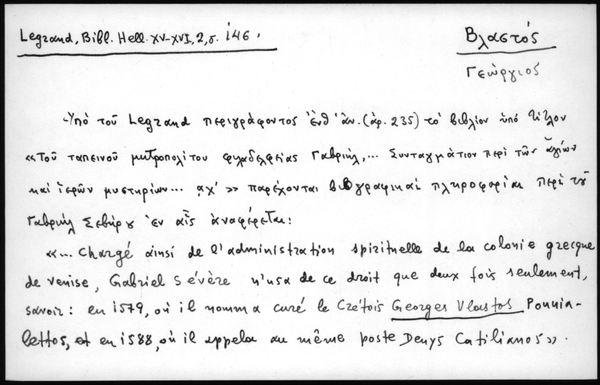 Legrand, Bibl. Hell. XV-XVI, 2, σ. 146.
Βλαστός
Γεώργιος
Ὑπό τοῦ Legrand περιγράφοντος ἔνθ' ἀν. (ἀρ. 235) τό βιβλίον ὑπό τίτλον
«Τοῦ ταπεινοῦ μητροπολίτου φιλαδελφείας Γαβριήλ,... Συνταγμάτιον περί τῶν ἁγίων
καί ἱερῶν μυστηρίων... αχ'» παρέχονται βιογραφικαί πληροφορίαι περί τοῦ
Γαβριήλ Σεβήρου ἐν αἷς ἀναφέρεται:
«... Chargé ainsi de l'administration spirituelle de la colonie grecque
de Venise, Gabriel Sévère n'usa de ce droit que deux fois seulement,
savoir: en 1579, où il nomma curé le Crétois Georges Vlastos Pounia-
lettos, et en 1588, où il appela au même poste Denys Catilianos».